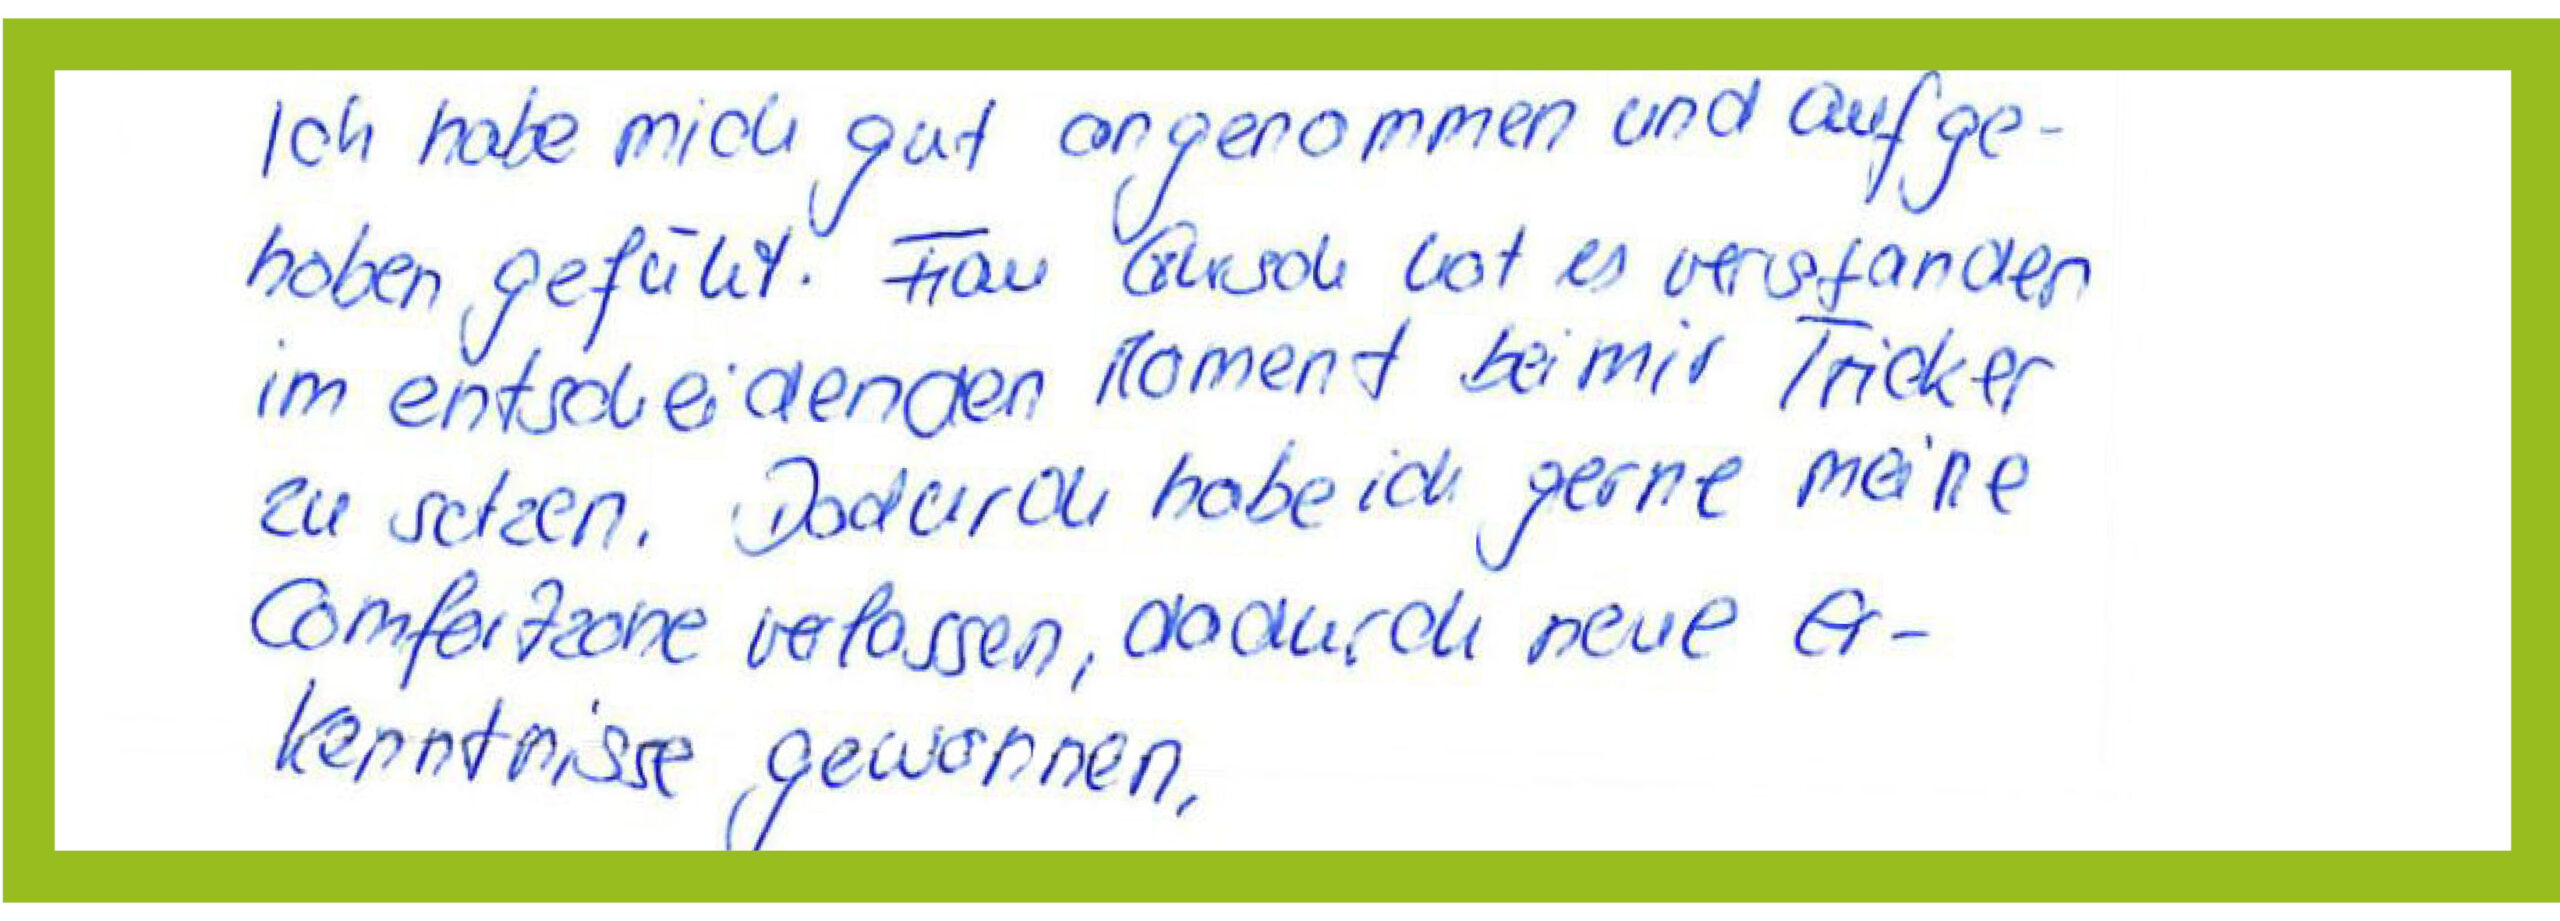 Ich habe mich gut angenommen und aufge-
hoben gefühlt. Frau hat es verstanden
im entscheidenden Moment bei mir Tricker
zu setzen. Dadurch habe ich gerne meine
Comfortzone verlassen, dadurch neue Er-
kenntnisse gewonnen,